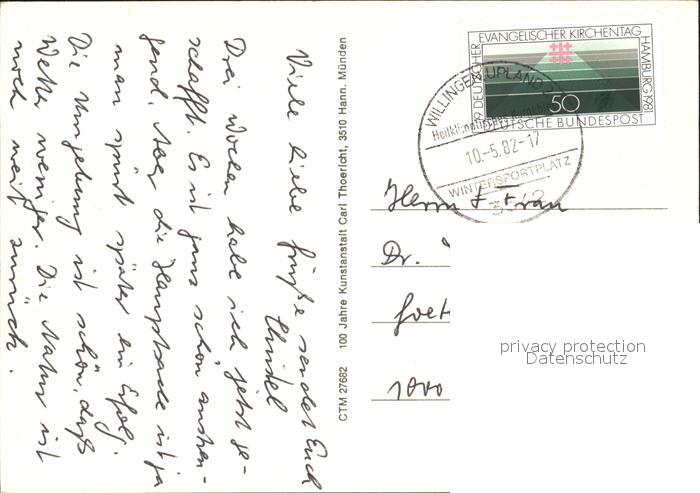 Viele liebe Grüße sendet Euch
Christel
Drei Wochen habe ich jetzt ge-
schafft. Es ist ganz schön anstren-
gend. Aber die Hauptsache ist ja
man spürt später ein Erfolg.
Die Umgebung ist schön, das
Wetter weniger. Die Natur ist
noch weit zurück.
CTM 27682 100 Jahre Kunstanstalt Carl Thoericht, 3510 Hann. Münden
19. DEUTSCHER EVANGELISCHER KIRCHENTAG HAMBURG 1981
50
DEUTSCHE BUNDESPOST
WILLINGEN, UPLAND
Heilklimatischer Kneippkurort
10.-5.82-17
WINTERSPORTPLATZ
Herrn + Frau
Dr.
Goet
1000
privacy protection
Datenschutz